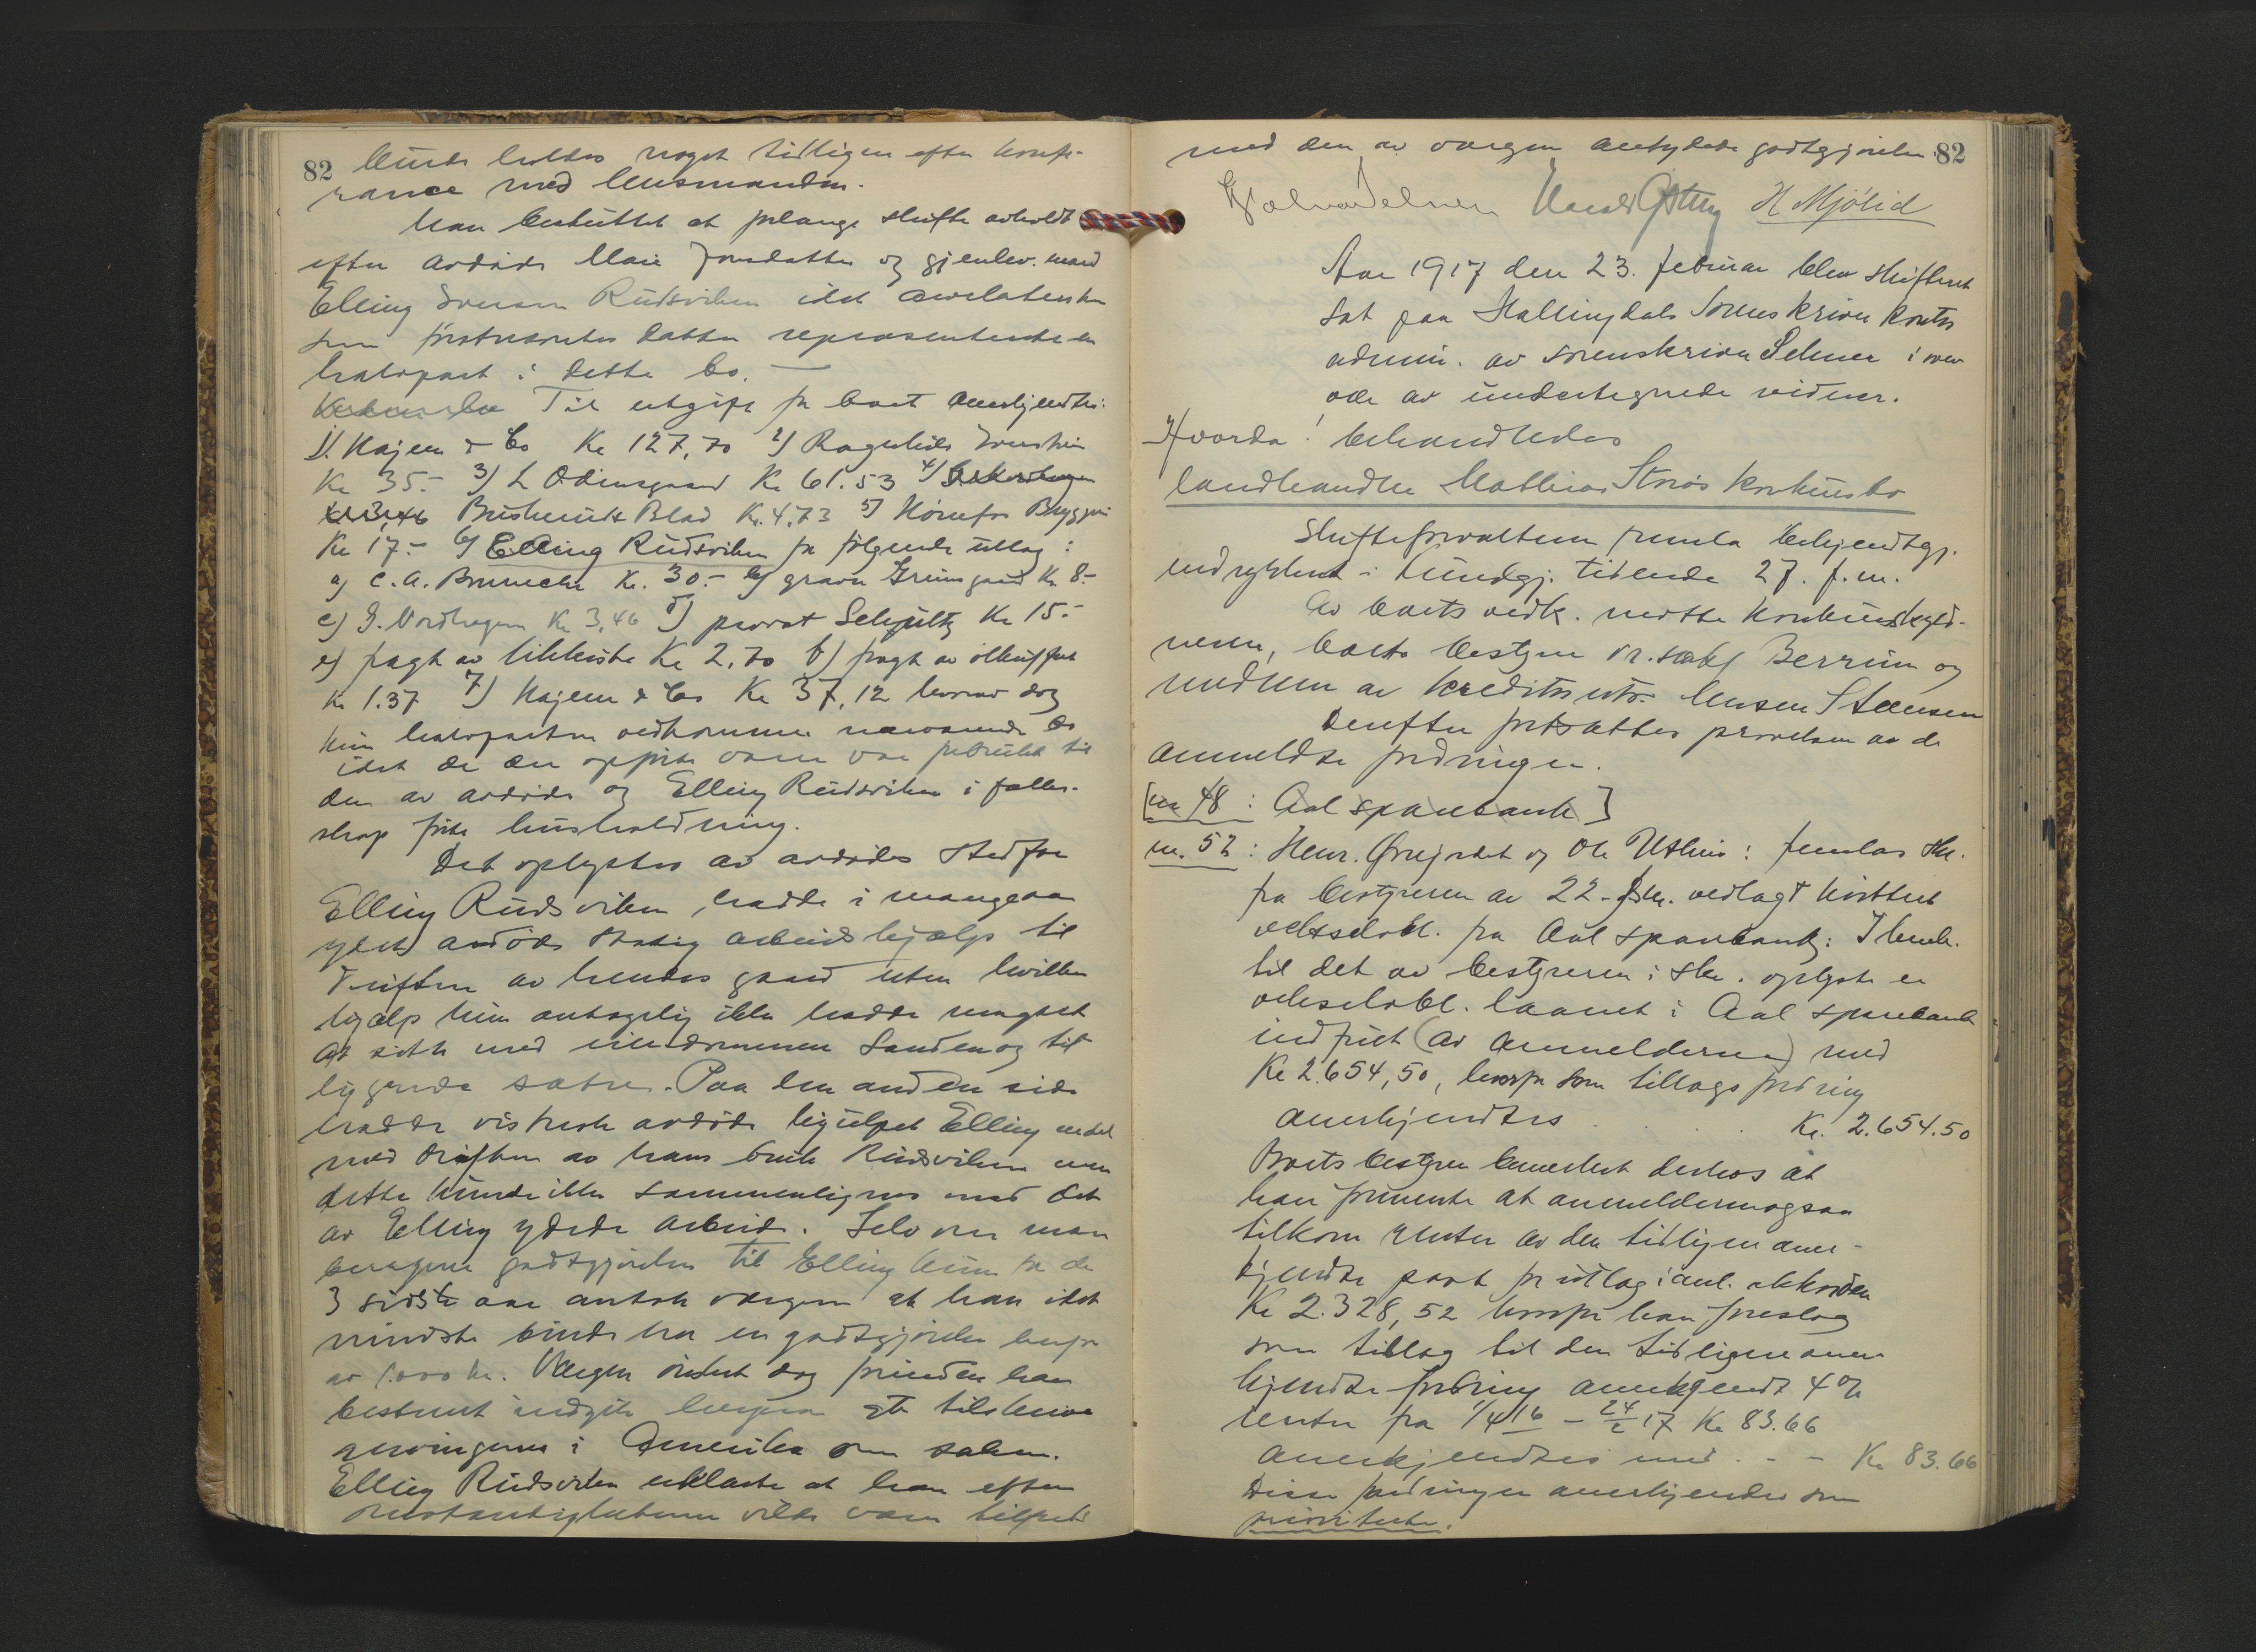 82 kunde holdes noget tidligere efter konfe-
rance med lensmanden.
Man besluttet at forlange skifte avholdt
efter avdøde Marie Jonsdatter og gjenlev. mand
Elling Svensen Rudsviken idet arvelaterskn
som førstnævntes datter repræsenterte en
halvpart i dette bo. —
Til utgift for boet anerkjendtes:
1) Majem & Co Kr 127,70 2) Ragnhild
Kr 35.- 3) L Odinsgaard Kr 61.53 4)
Kr 3,46 Buskeruds Blad Kr. 4,73 5) Hønefos Bryggeri
Kr 17.- 6) Elling Rudsviken for følgende utlæg:
a) C. A. Kr. 30.- b) graver Grimsgaard Kr 8.-
c) G. Nordhagen Kr 3,46 d) provst Schjultz Kr 15.-
e) fragt av likkiste Kr 2,70 f) fragt av
Kr 1.37 7) Majem & Co Kr 37,12 hvorav dog
kun halvparten vedkommer nærværende bo
idet de der opførte varer var forbrukt til
den av avdøde og Elling Rudsviken i fælles-
skap førte husholdning.
Det oplystes at avdødes stedfar
Elling Rudsviken hadde i mange aar
ydet avdøde stadig arbeidshjælp til
driften av hendes gaard uten hvilken
hjælp hun antagelig ikke hadde magtet
at sitte med eiendommen Sanden og til
liggende sætre. Paa den anden side
hadde visstnok avdøde hjulpet Elling endel
med driften av hans bruk Rudsviken men
dette kunde ikke sammenlignes med det
av Elling ydede arbeide. Selv om man
beregner godtgjørelse til Elling kun for de
3 sidste aar antok vergen at han idet
mindste burde ha en godtgjørelse herfor
av 1.000 kr. Vergen ønsket dog førinden han
bestemt indgik herpaa at tilskrive
arvingerne i Amerika om saken.
Elling Rudsviken erklærte at han efter
omstændighetene vilde være tilfreds
82
med den av vergen antydede godtgjørelse.
H Mjölid
Aar 1917 den 23. februar blev skifteret
sat paa Hallingdals Sorenskriver kontor
admin. av sorenskriver Selmer i over
vær av undertegnede vidner.
Hvorda! behandledes
landhandler Mathias konkursbo
Skifteforvalteren fremla bekjendtgj.
indrykket i Kundgj. tidende 27. f.m.
Av boets vedk. møtte konkursskyld-
neren, boets bestyrer o.r.sakf Berrum og
medlem av kreditorutv. Steensen
Derefter fortsattes prøvelsen av de
anmeldte fordringer.
[nr 48: Aal sparebank]
nr. 52: Henr. og Ole: Fremlas skr.
fra bestyreren av 22. ds. vedlagt kvittert
vekselobl. fra Aal sparebank: I henh.
til det av bestyreren i skr. oplyste er
vekselobl. laanet i Aal sparebank
indfriet (av anmelderne) med
Kr 2.654,50, hvorfor som tillægsfordring
anerkjendtes . . . Kr. 2.654.50
Boets bestyrer bemerket derhos at
han formente at anmelderne ogsaa
tilkom renter av den tidligere aner-
kjendte post for utlæg i anl. akkorden
Kr 2.328,52 hvorfor han foreslog
som tillæg til den tidligere aner-
kjendte fordring anerkjendt 4 %
renter fra 1/4 16 - 24/2 17 Kr 83.66
anerkjendtes med . - - Kr 83.66
Disse fordringer anerkjendes som
prioriterte.